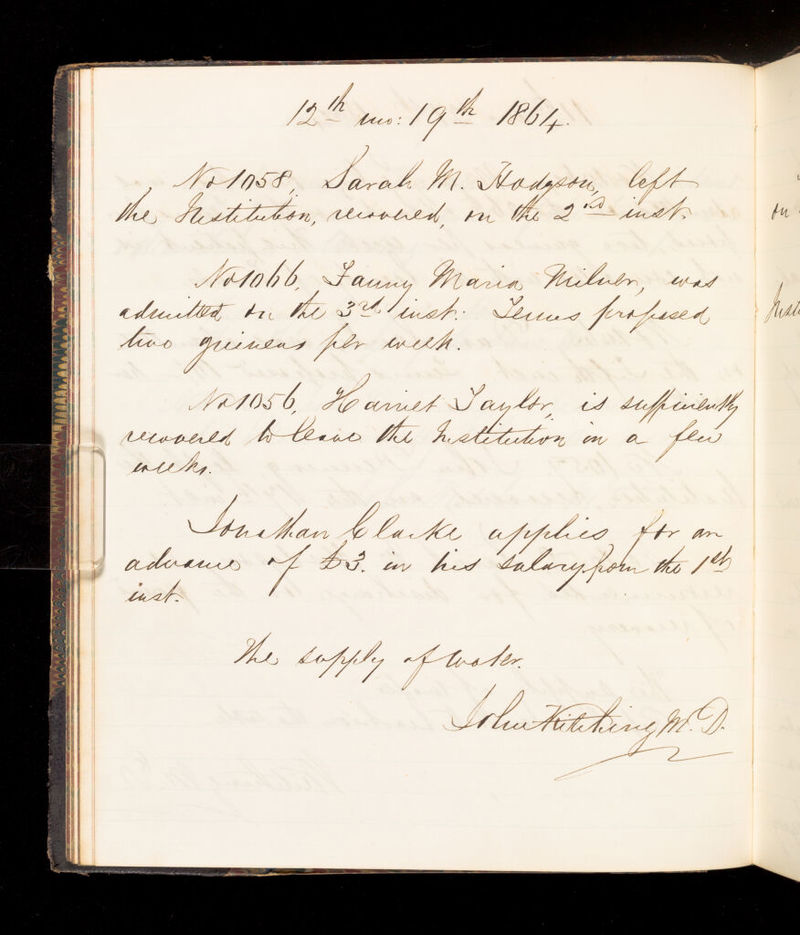 12th mo: 19th 1864.
No 1058, Sarah M. Hodgson, left
the Institution, recovered, on the 2nd inst.
No 1066, Fanny Maria Milner, was
admitted on the 3rd inst: Terms proposed
two guineas per week.
No 1056, Harriet Taylor, is sufficiently
recovered to leave the Institution in a few
weeks.
Jonathan Clarke applies for an
advance of £3. in his salary from the 1st
inst.
The supply of water.
John Kitching M.D.
on
Insti